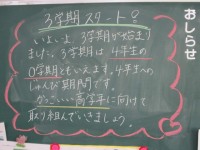 おしらせ
3学期スタート?
いよいよ3学期が始まり
ました。3学期は4年生の
0学期ともいえます。4年生への
じゅんび期間です。
かっこいい高学年に向けて
取り組んでいきましょう。